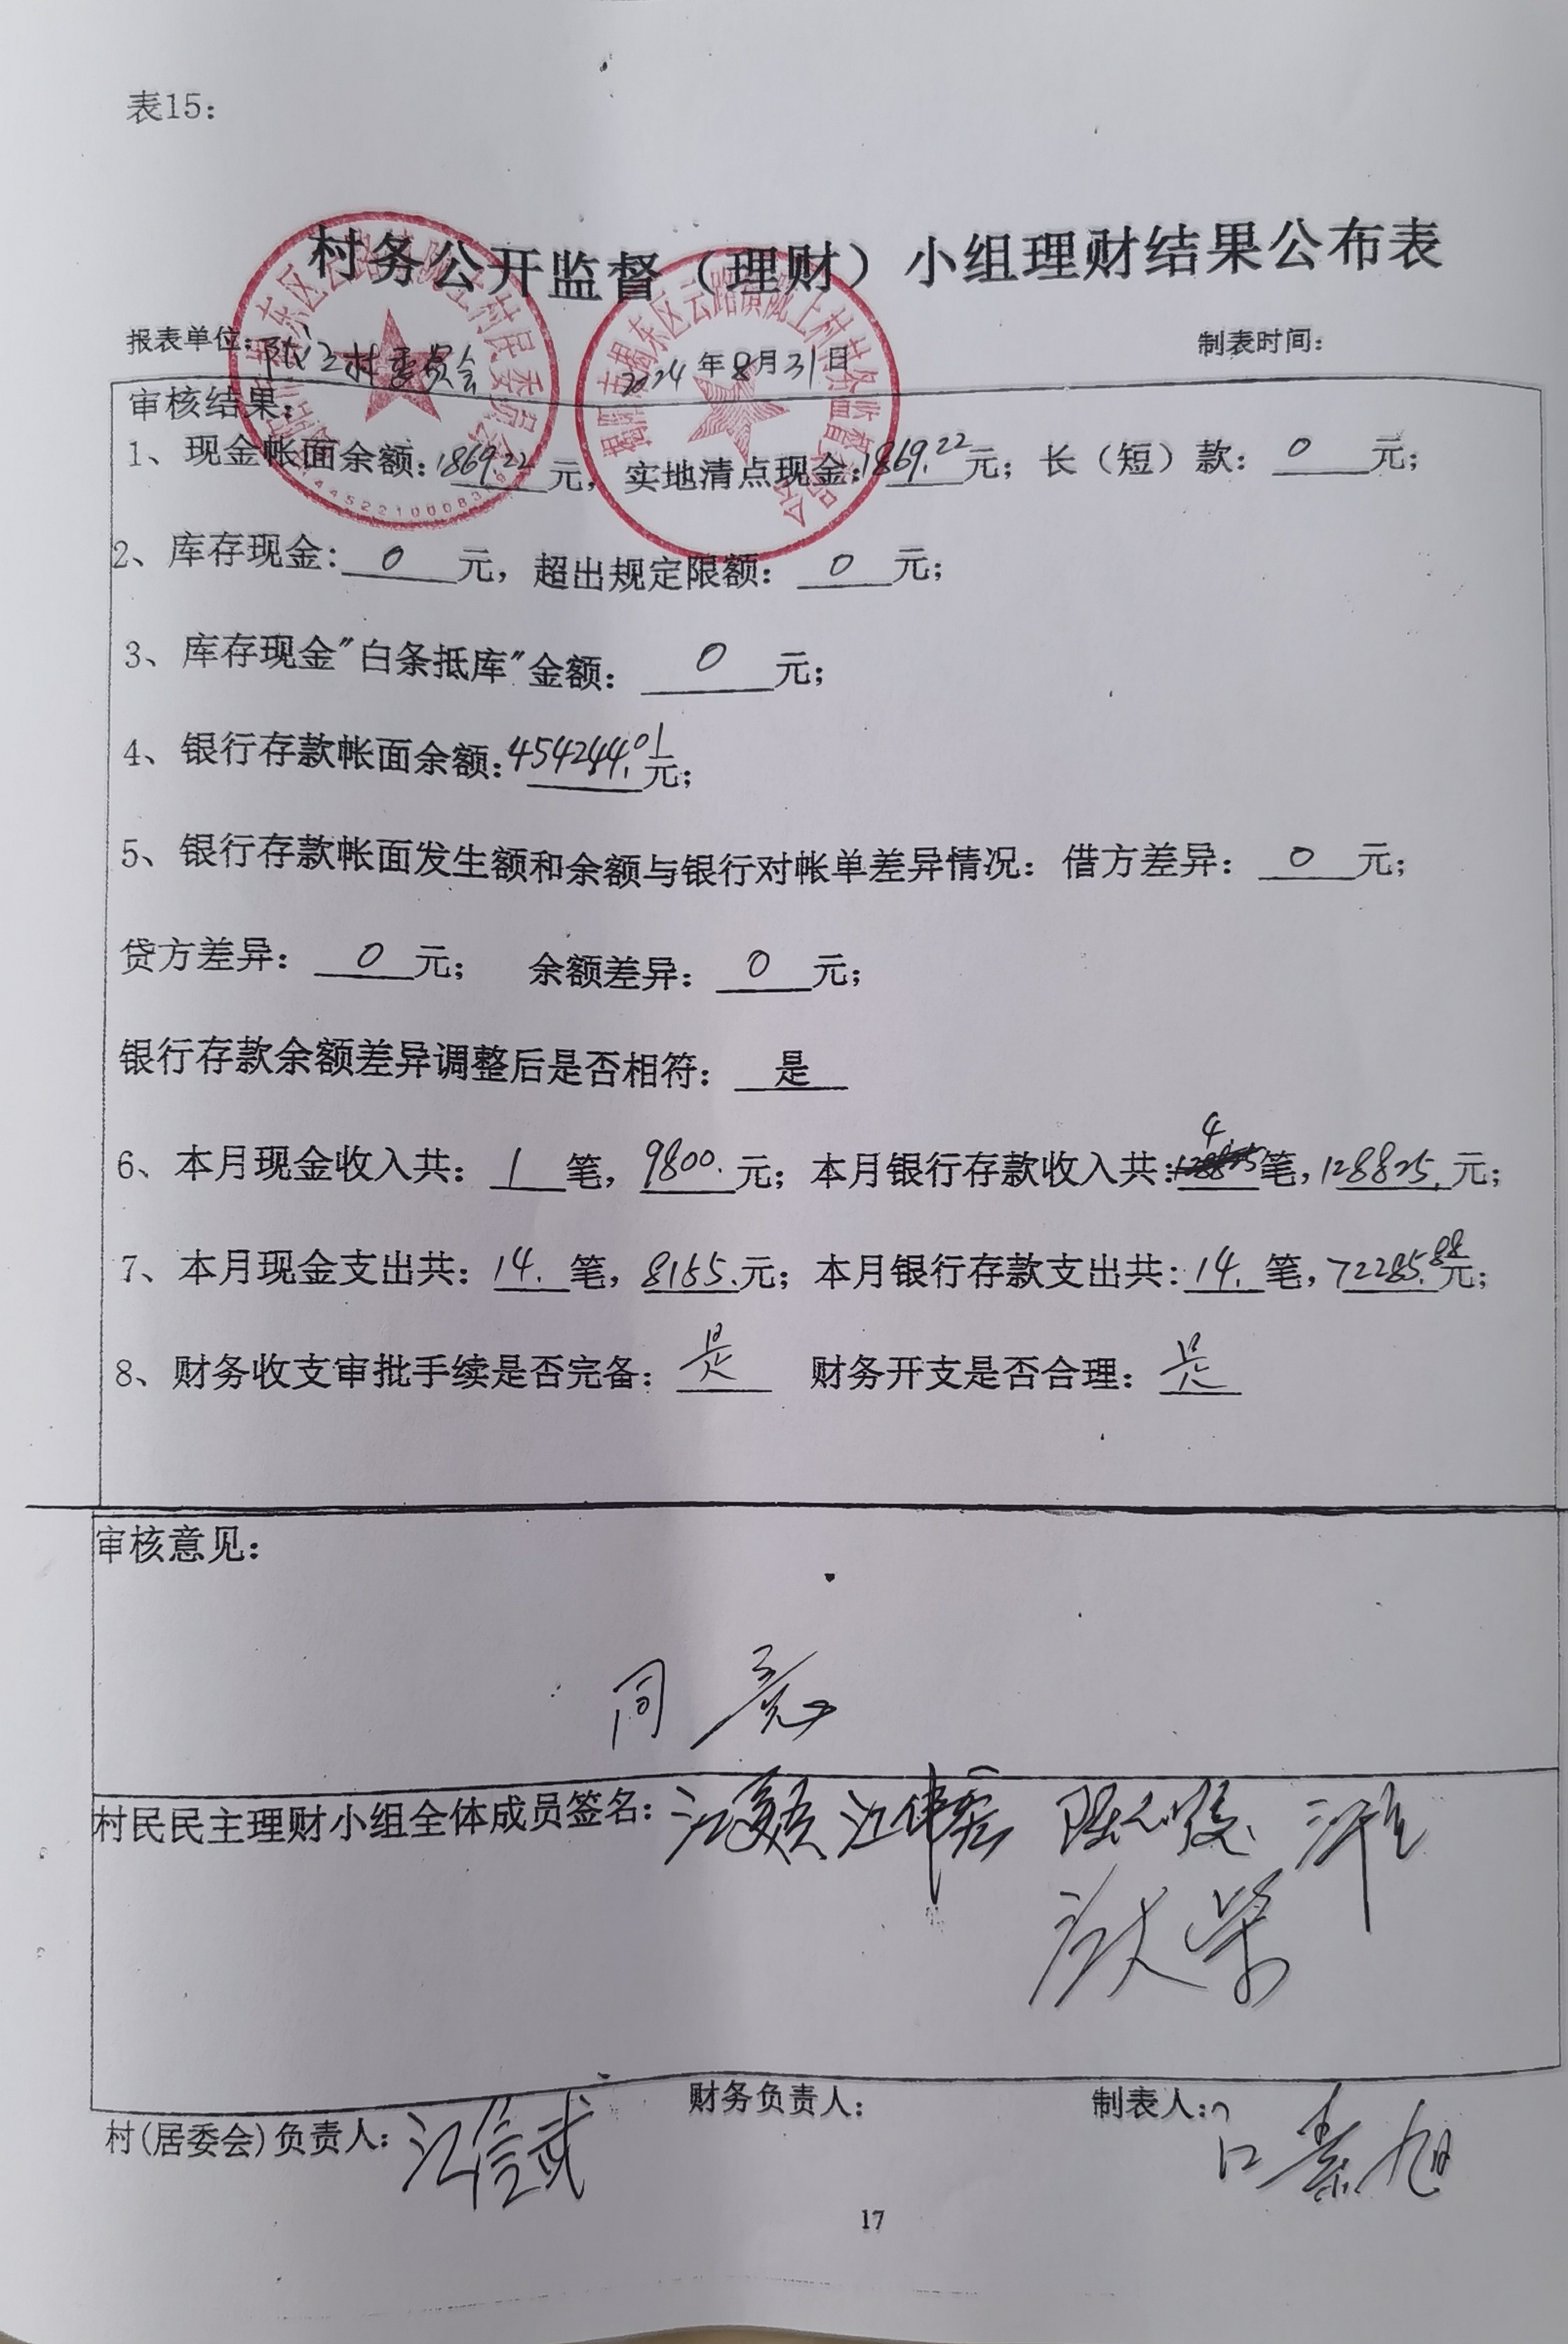 表15：
村务公开监督（理财）小组理财结果公布表
报表单位：陇上村委员会 2024年8月31日 制表时间：
审核结果：
1、现金帐面余额：1869.22元，实地清点现金：1869.22元；长（短）款：0元；
2、库存现金：0元，超出规定限额：0元；
3、库存现金"白条抵库"金额：0元；
4、银行存款帐面余额：454244.01元；
5、银行存款帐面发生额和余额与银行对帐单差异情况：借方差异：0元；
贷方差异：0元； 余额差异：0元；
银行存款余额差异调整后是否相符：是
6、本月现金收入共：1笔，9800.元；本月银行存款收入共：4笔，128825.元；
7、本月现金支出共：14.笔，8155.元；本月银行存款支出共：14.笔，72285.88元；
8、财务收支审批手续是否完备：是 财务开支是否合理：是
审核意见：
同意
村民民主理财小组全体成员签名：
村(居委会)负责人： 财务负责人： 制表人：
17